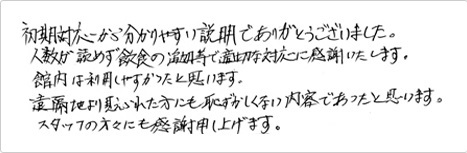 初期対応から分かりやすい説明でありがとうございました。
人数が読めず飲食の追加等で適切な対応に感謝いたします。
館内は利用しやすかったと思います。
遠隔地より見えられた方にも恥ずかしくない内容であったと思います。
スタッフの方々にも感謝申し上げます。